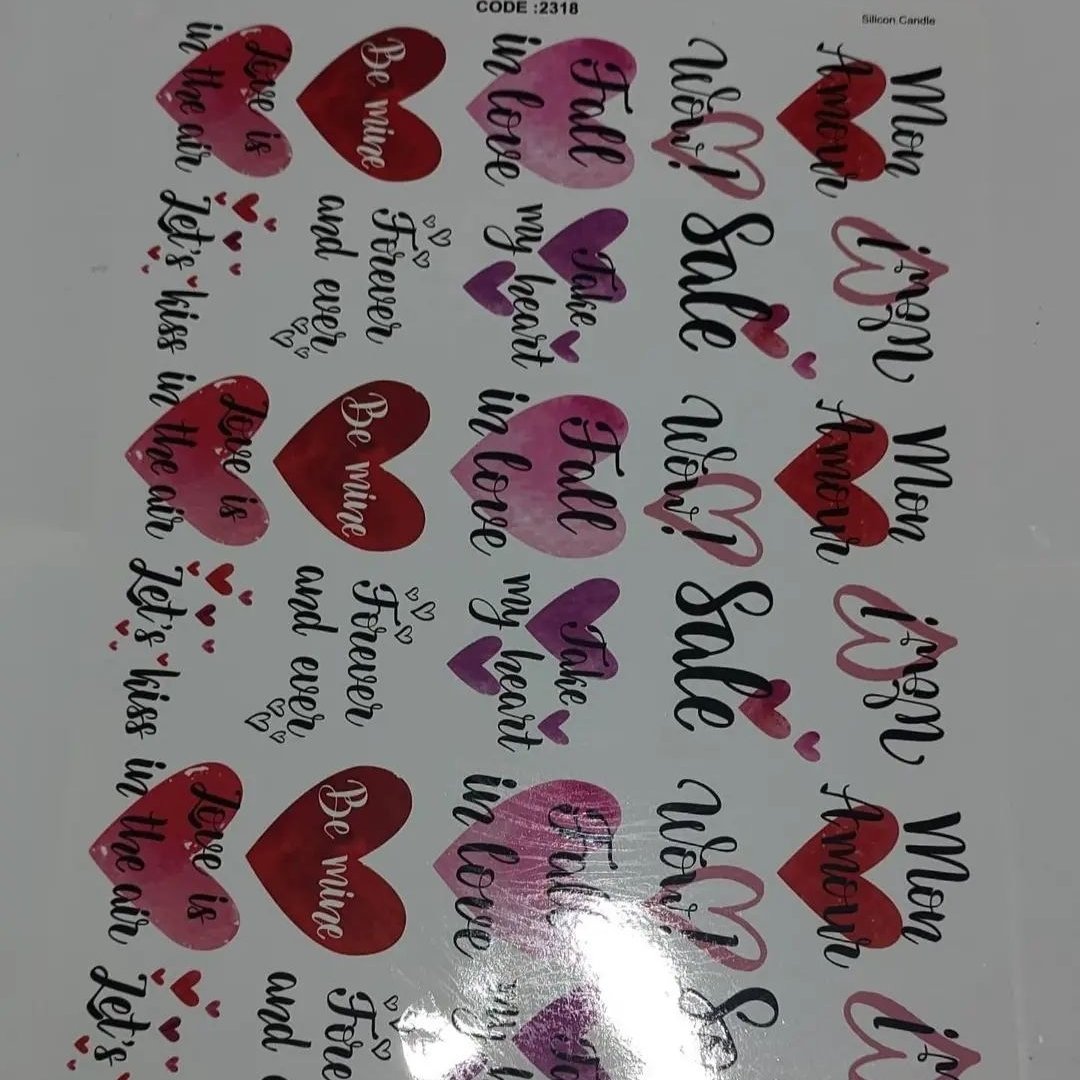 CODE :2318
Silicon Candle
Mon
Amour
Mon
Amour
Mon
Amour
Wow!
Sale
Wow!
Sale
Wow!
Fall
in love
Take
my heart
Fall
in love
Take
my heart
Fall
in love
my
Be mine
Forever
and ever
Be mine
Forever
and ever
Be mine
and
Love is
in the air
Let's kiss
Love is
in the air
Let's kiss
Love is
in the air
Let's